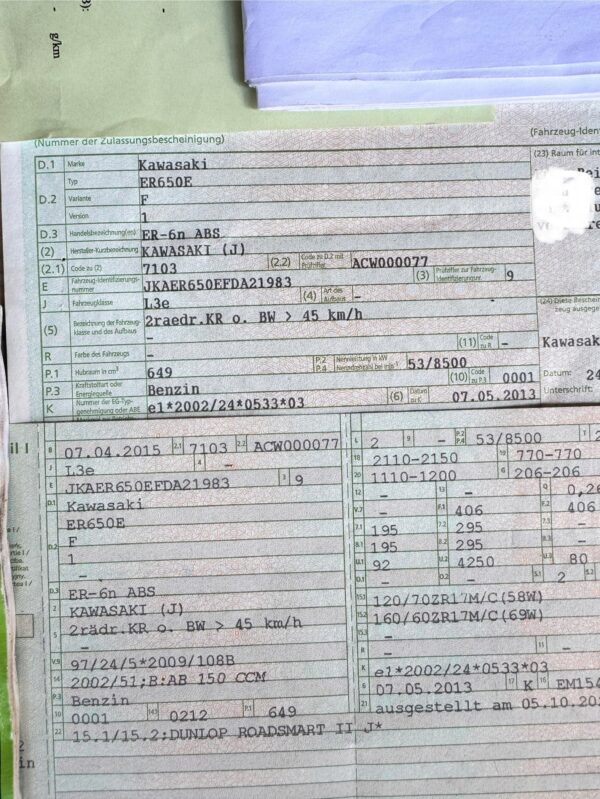 g/km
(Nummer der Zulassungsbescheinigung)
D.1 Marke Kawasaki
D.2 Typ ER650E
Variante F
Version 1
D.3 Handelsbezeichnung(en) ER-6n ABS
(2) Hersteller-Kurzbezeichnung KAWASAKI (J)
(2.1) Code zu (2) 7103 (2.2) Code zu D.2 mit Prüfziffer ACW000077
E Fahrzeug-Identifizierungs-nummer JKAER650EFDA21983 (3) Prüfziffer zur Fahrzeug-Identifizierungsnr. 9
J Fahrzeugklasse L3e (4) Art des Aufbaus –
(5) Bezeichnung der Fahrzeug-klasse und des Aufbaus 2raedr.KR o. BW > 45 km/h
–
R Farbe des Fahrzeugs – (11) Code zu R –
P.1 Hubraum in cm³ 649 P.2 P.4 Nennleistung in kW 53/8500
P.3 Kraftstoffart oder Energiequelle Benzin (10) Code zu P.3 0001
K Nummer der EG-Typ-genehmigung oder ABE e1*2002/24*0533*03 (6) Datum zu K 07.05.2013
(23) Raum für int
(24) Diese Beschein
zeug ausgegе
Kawasak
Datum: 24
Unterschrift:
B 07.04.2015 2.1 7103 2.2 ACW000077
J L3e 4 –
E JKAER650EFDA21983 3 9
D.1 Kawasaki
ER650E
D.2 F
1
–
D.3 ER-6n ABS
2 KAWASAKI (J)
5 2rädr.KR o. BW > 45 km/h
–
V.9 97/24/5*2009/108B
14 2002/51;B:AB 150 CCM
P.3 Benzin
10 0001 14.1 0212 P.1 649
22 15.1/15.2:DUNLOP ROADSMART II J*
L 2 9 – P.2 P.4 53/8500
18 2110-2150 19 770-770
20 1110-1200 G 206-206
12 – 13 – Q 0,26
V.7 – F.1 406 F.2 406
7.1 195 7.2 295 7.3 –
8.1 195 8.2 295 8.3 –
U.1 92 U.2 4250 U.3 80
O.1 – O.2 – S.1 2 S.2
15.1 120/70ZR17M/C(58W)
15.2 160/60ZR17M/C(69W)
15.3 –
R – 11 –
K e1*2002/24*0533*03
6 07.05.2013 17 K 16 EM154
21 ausgestellt am 05.10.20